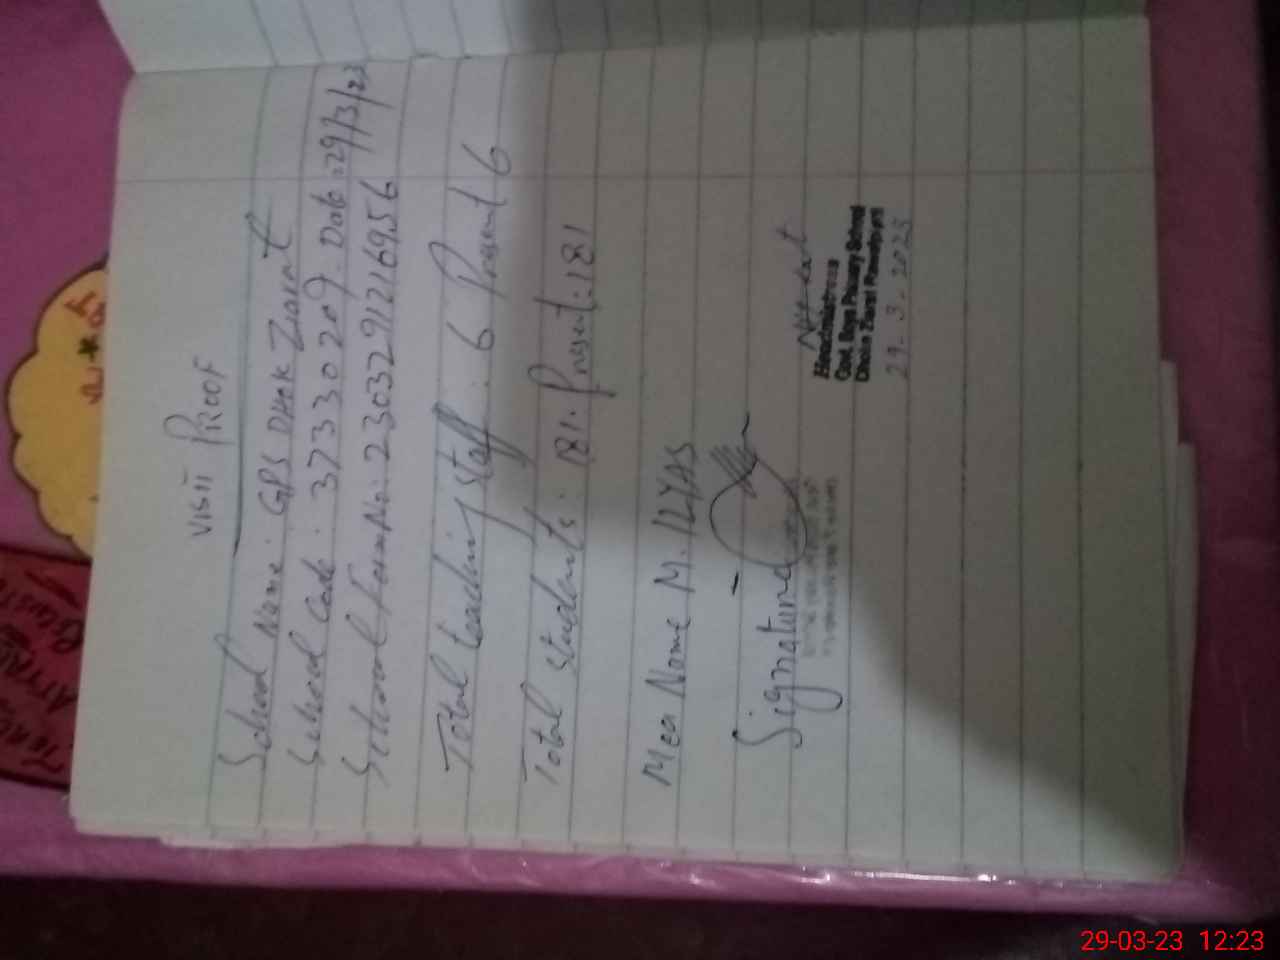 VISIT PROOF
School Name : GPS DHOK Ziarat
School Code : 37330209. Date :29/3/23
School form No: 2303291216956
Total teaching staff : 6 Present 6
Total students : 181. Present: 181
Mea Name M. ILYAS
Signature
Headmistress
Govt. Boys Primary School
Dhoke Ziarat Rawalpindi
29.3.2023
29-03-23 12:23